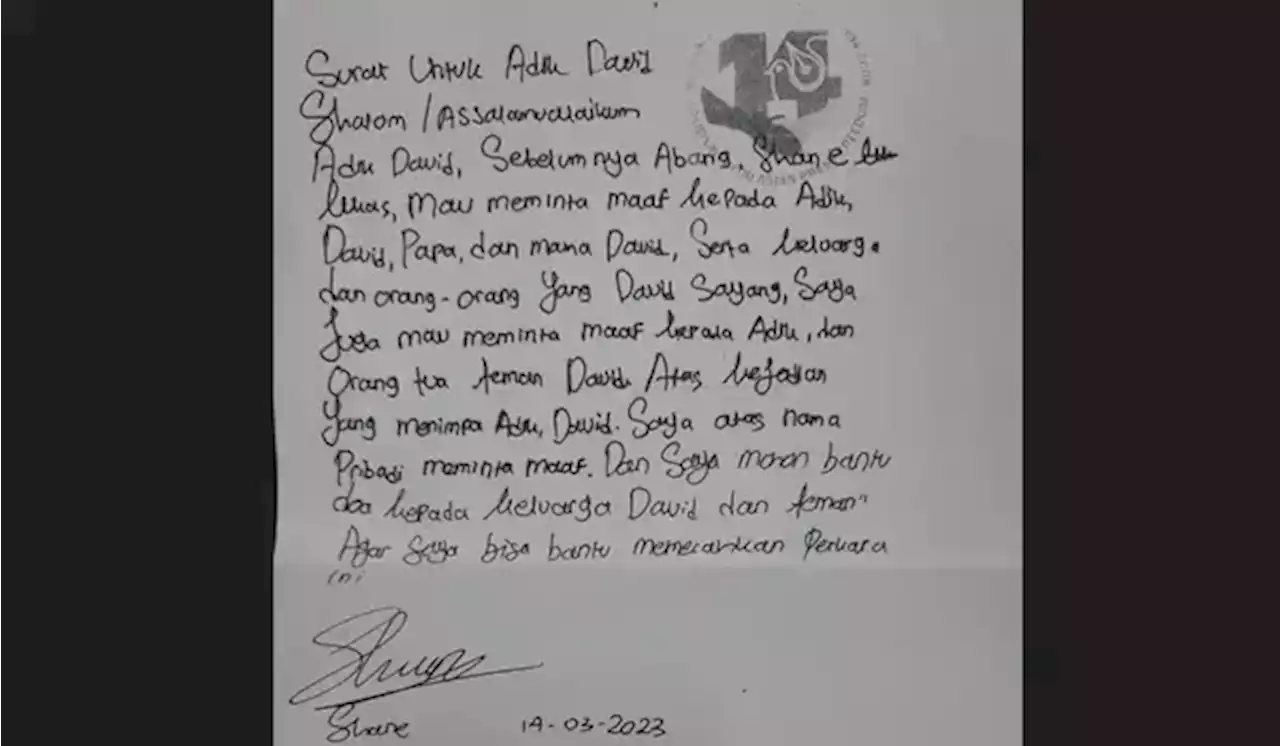 Surat Untuk Adik David
Shalom / Assalamualaikum
Adik David, Sebelumnya Abang, Shane
lukas, mau meminta maaf kepada Adik,
David, Papa, dan mama David, Serta keluarga
dan orang-orang Yang David Sayang, Saya
Juga mau meminta maaf kepada Adik, dan
Orang tua teman David. Atas kejadian
Yang menimpa Adik, David. Saya atas nama
Pribadi meminta maaf. Dan Saya mohon bantu
doa kepada keluarga David dan teman"
Agar Saya bisa bantu memecahkan Perkara
ini
Shane 14-03-2023